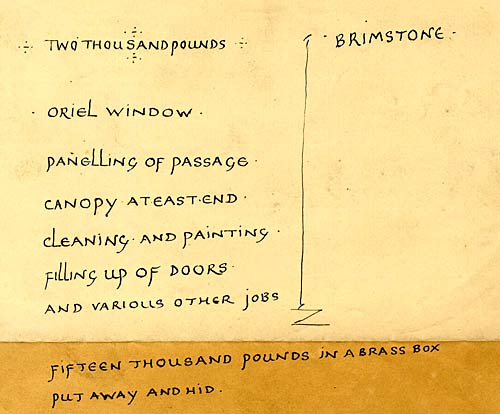 TWO THOUSAND POUNDS
BRIMSTONE
ORIEL WINDOW
PANELLING OF PASSAGE
CANOPY AT EAST END
CLEANING AND PAINTING
FILLING UP OF DOORS
AND VARIOUS OTHER JOBS
FIFTEEN THOUSAND POUNDS IN A BRASS BOX
PUT AWAY AND HID.